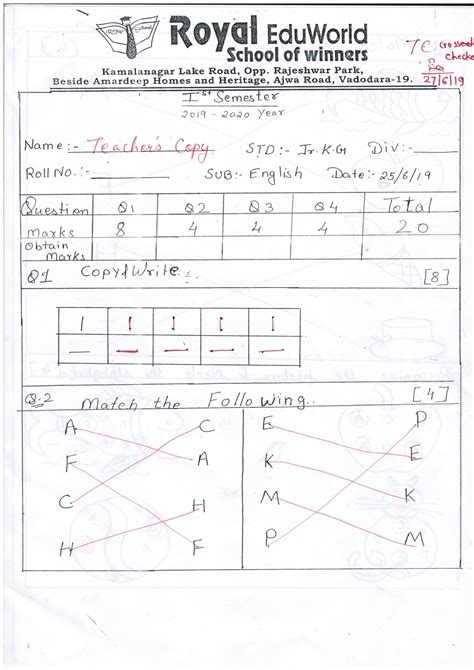 Royal EduWorld
School of winners
Kamalanagar Lake Road, Opp. Rajeshwar Park,
Beside Amardeep Homes and Heritage, Ajwa Road, Vadodara-19.
T.C. Crosseck
Checke
27/6/19
Ist Semester
2019 - 2020 Year
Name :- Teacher's Copy STD :- Jr.K.G Div :-
Roll No. :- SUB :- English Date :- 25/6/19
Question Q1 Q2 Q3 Q4 Total
Marks 8 4 4 4 20
Obtain Marks
Q1 Copy & Write. [8]
Q.2 Match the Following. [4]
A C E P
F A K E
C H M K
H F P M